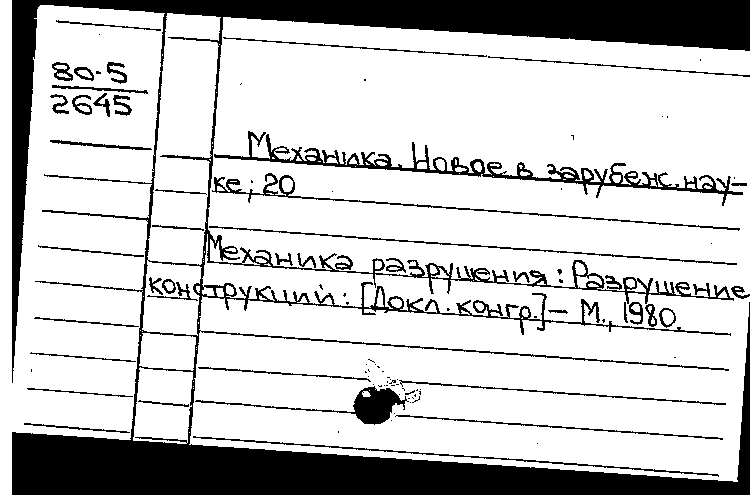 80-5
2645
Механика. Новое в зарубеж. нау-
ке; 20
Механика разрушения: Разрушение
конструкций: [Докл. конгр.] - М., 1980.